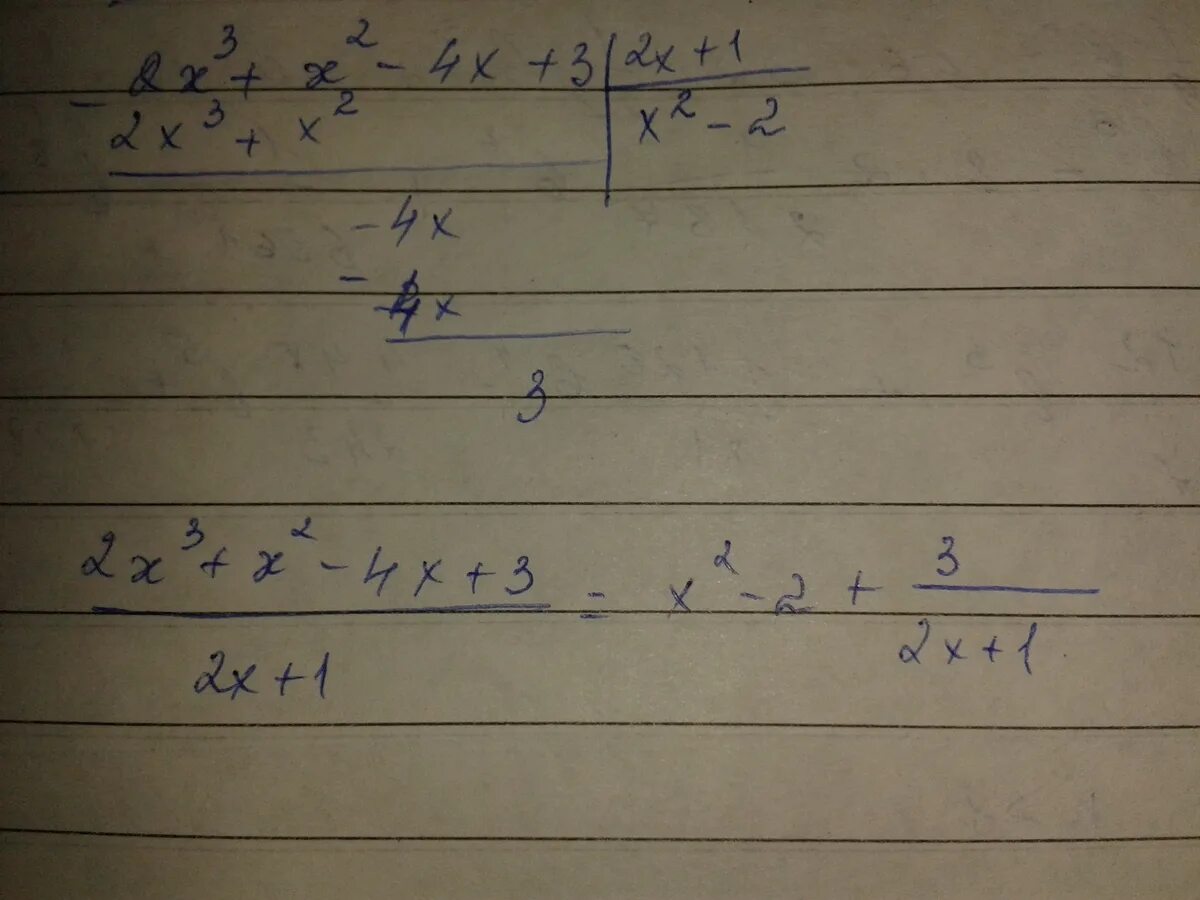 - 2x³ + x² - 4x + 3 | 2x + 1
2x³ + x² | x² - 2
- 4x
- -4x
3
2x³ + x² - 4x + 3 = x² - 2 + 3
2x + 1 2x + 1